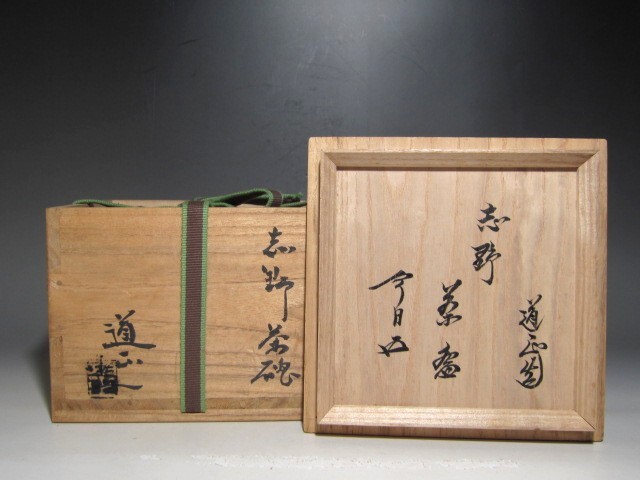 志野茶碗
道正
道正窯
志野
茶盌
今日又